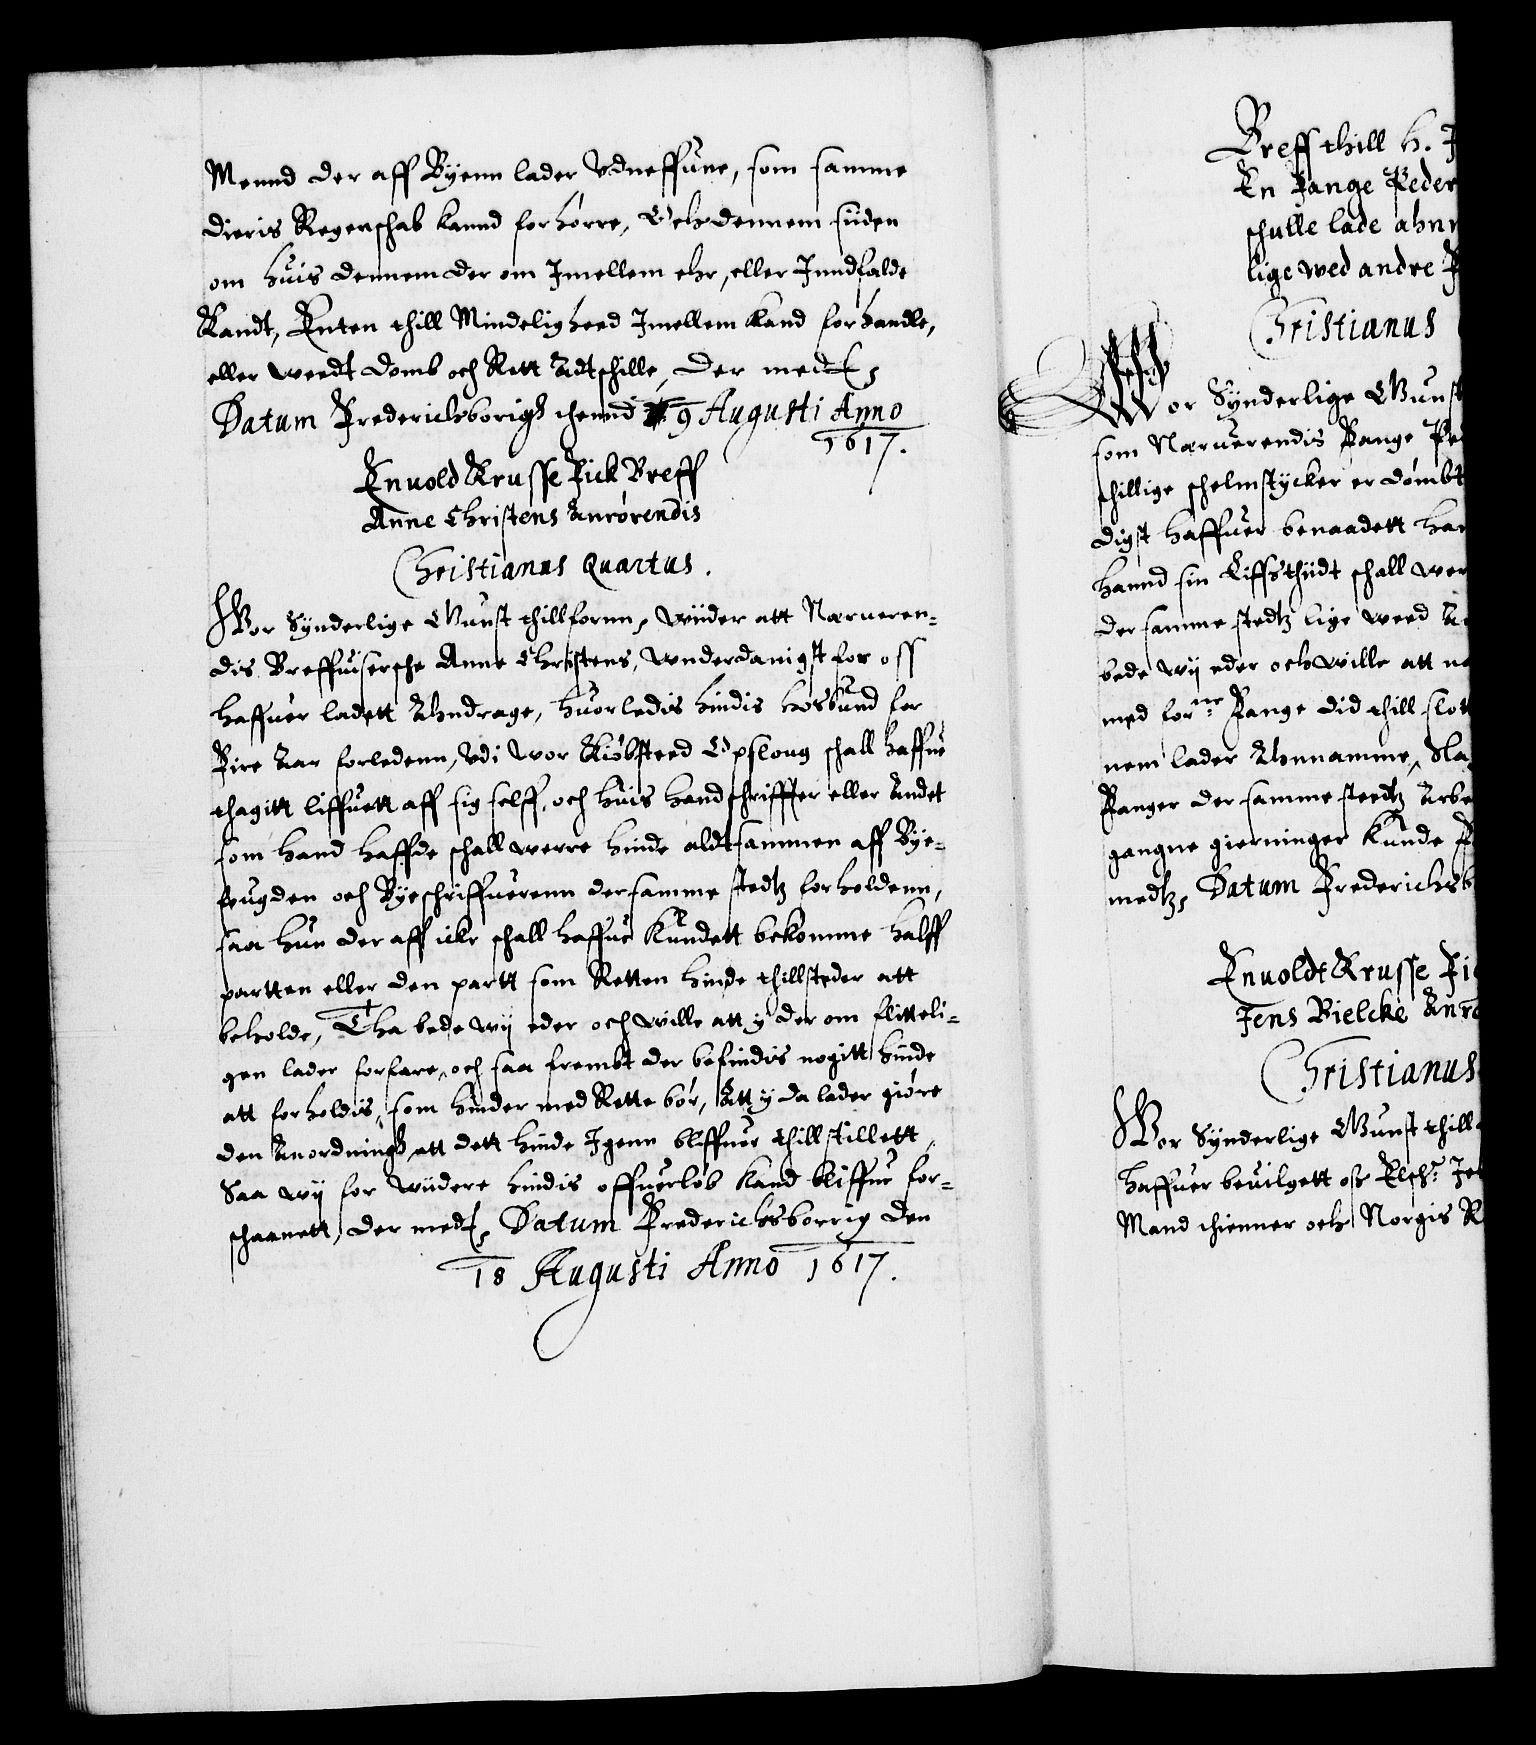 Mennd der aff Byenn lader Vdneffune, som samme
dieris Regenschab kannd forhörre, Och dennem siiden
om huis dennem der om Imellem ehr, eller Inndfalde
Kandt, Enten thill Mindeligheed Imellem kand forhandle,
eller weedt domb och Rett Adtschille, der med
Datum Frederichsborigh thennd 9 Augusti Anno
1617.
Enuold Krusse Fick Breff
Anne Christens Anrörendis
Christianus Quartus.
Wor Synderlige Gunst thillfornn, wiider att Nerueren-
dis Breffuisersche Anne Christens, wnderdanigst for oss
haffuer ladett Ahndrage, huorledis hindis Hosbund for
Fire Aar forledenn, Vdi wor Kiöbsteed Opsloug schall haffue
thagitt liffuett aff sig selff, och huis handschriffter eller Andet
som hand haffde schall werre hinde aldtsammen aff Bye-
fougden och Byeschriffuerenn dersamme stedtz forholdenn,
saa hun der aff icke schall haffue Kundett bekomme halff
partten eller den partt som Retten hinde thillsteder att
beholde, Tha bede wij eder och wille att y der om flitteli-
gen lader forfare, och saa frembt der befindis nogitt hinde
att forholdis, som hinder med Rette bör, Att y da lader giöre
den Anordningh, att dett hinde Igenn bliffuer thillstillett,
Saa wij for wiidere hindis offuerlöb kand bliffue for-
schaanett, der med Datum Frederichsborrig den
18 Augusti Anno 1617.
Breff thill H.
En Fange Peder
schulle lade ahn
lige wed andre
Christianus
Wor Synderlige Gunst
som Neruerendis Fange Pe
schillige schelmstycker er dömbt
digst haffuer benaadett ha
hannd sin Liffsthiidt schall wer
der samme stedtz lige weed
bede wij eder och wille att
med forne Fange did thill slott
nem lader Ahnnamme,
Fanger der samme steedtz Arbe
gangne gierninger kunde
medtz, Datum Frederichsb
Enuoldt Krusse Fi
Jens Bielcke Anrö
Christianus
Wor Synderlige Gunst thill
haffuer beuilgett oss Elsch:
Mand thienner och Norgis R